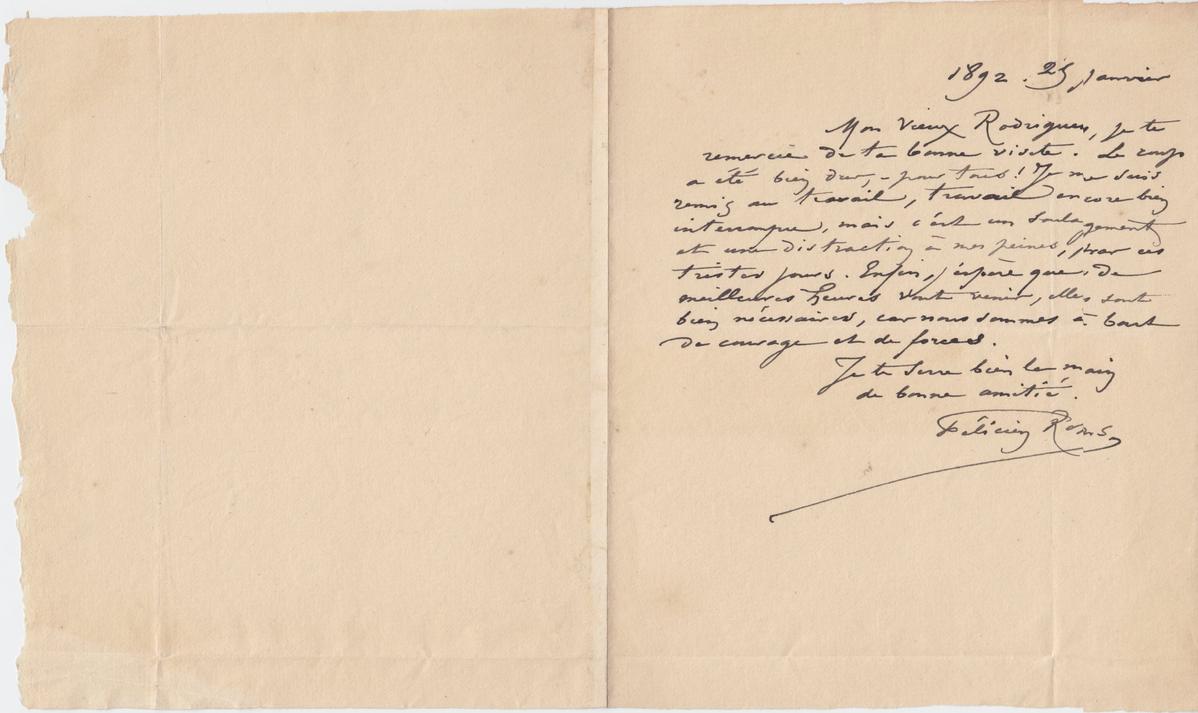 1892. 25 Janvier
Mon vieux Rodrigues, je te
remercie de ta bonne visite. Le coup
a été bien dur, - pour tous! Je me suis
remis au travail, travail encore bien
interrompu, mais c'est un soulagement
et une distraction à mes peines, par ces
tristes jours. Enfin, j'espère que de
meilleures heures vont venir, elles sont
bien nécessaires, car nous sommes à bout
de courage et de forces.
Je te serre bien la main
de bonne amitié.
Félicien Rops